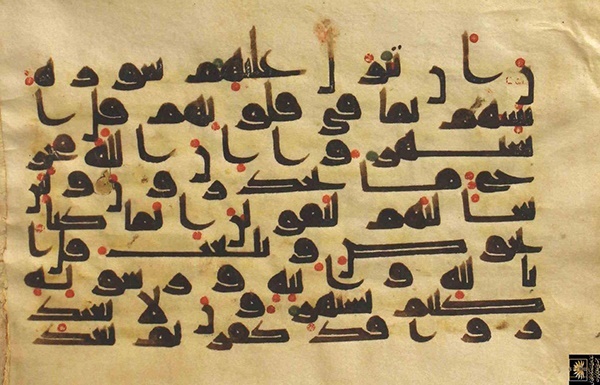 ن ان تنزل عليهم سورة
تنبئهم بما في قلوبهم قل ا
ستهزوا ان الله مخر
ج ما تحذرون ولئن
سالتهم ليقولن انما كنا
نخوض ونلعب قل ا
بالله وايته ورسوله
كنتم تستهزون لا تعتذ
روا قد كفرتم بعد